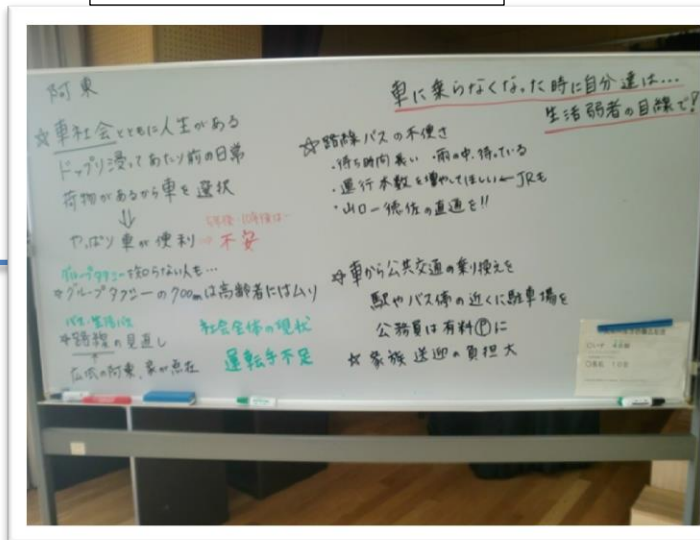 阿東
☆車社会とともに人生がある
ドップリ浸ってあたり前の日常
荷物があるから車を選択
⇓
やっぱり車が便利→不安
5年後・10年後は…
グループタクシーを知らない人も…
☆グループタクシーの700mは高齢者にはムリ
バス・生活バス
☆路線の見直し
広大の阿東、家が点在
社会全体の現状
運転手不足
車に乗らなくなった時に自分達は…
生活弱者の目線で!
☆路線バスの不便さ
・待ち時間長い ・雨の中、待っている
・運行本数を増やしてほしい←JRも
・山口ー徳佐の直通を!!
☆車から公共交通の乗り換えを
駅やバス停の近くに駐車場を
公務員は有料Ⓟに
☆家族送迎の負担大